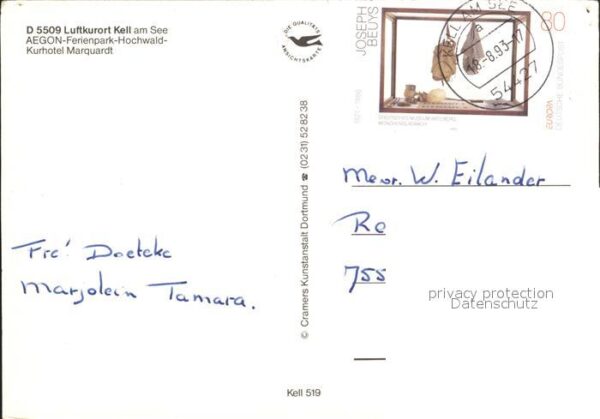 D 5509 Luftkurort Kell am See
AEGON-Ferienpark-Hochwald-
Kurhotel Marquardt
DIE QUALITÄTS
ANSICHTSKARTE
© Cramers Kunstanstalt Dortmund ☎ (0231) 52 82 38
JOSEPH
BEUYS
80
DEUTSCHE BUNDESPOST
KELL AM SEE
a
18.-8.93-17
54427
Mevr. W. Eilander
Re
755
Fré! Doetcke
Marjolein Tamara.
privacy protection
Datenschutz
Kell 519